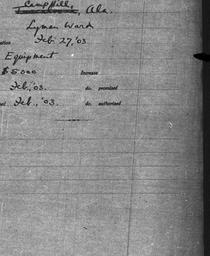 Camp Hill, Ala.
Lyman Ward
Feb 27, '03
Equipment
$5000 Increase
Feb, '03. do. promised
Feb., '03. do. authorized